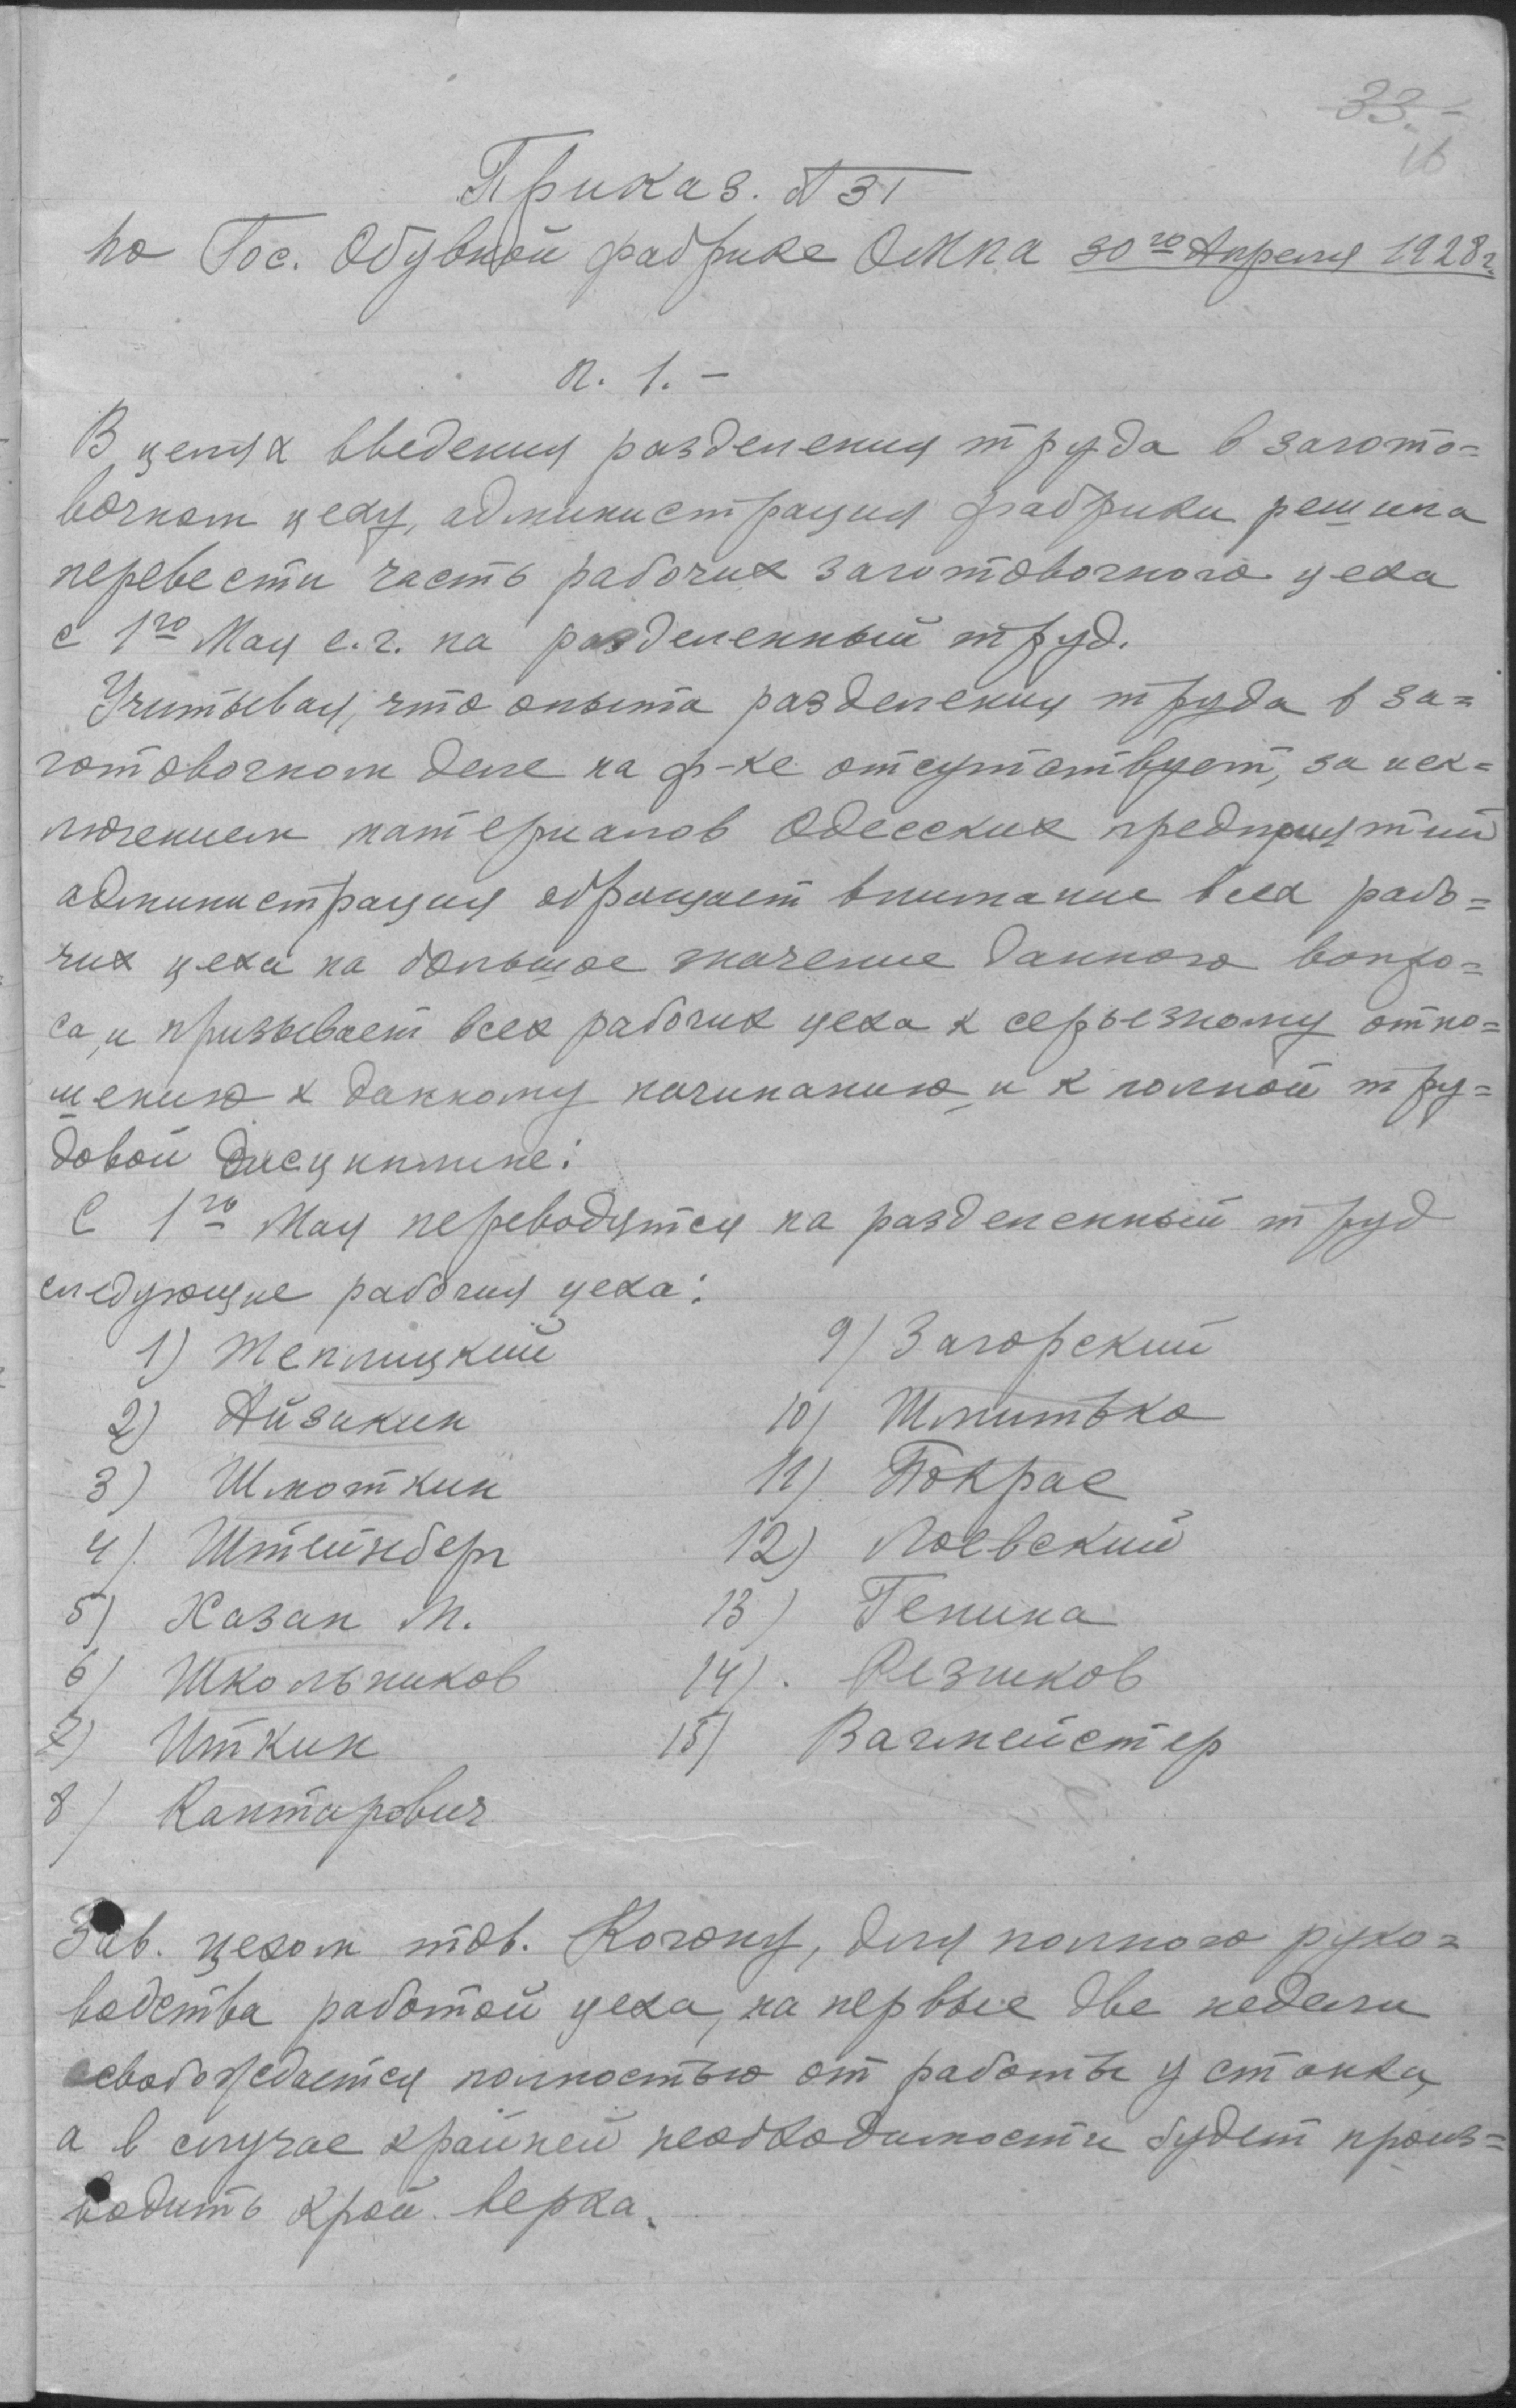 33.-
16
Приказ. № 31
по Гос. Обувной фабрике ОМПА 30го Апреля 1928 г.
п. 1. -
В целях введения разделения труда в загото=
вочном цеху, администрация фабрики решила
перевести часть рабочих заготовочного цеха
с 1го Мая с. г. на разделенный труд.
Учитывая, что опыта разделения труда в за=
готовочном деле на ф-ке отсутствует, за иск=
лючением материалов Одесских предприятий
администрация обращает внимание всех рабо=
чих цеха на большое значение данного вопро=
са, и призывает всех рабочих цеха к серьезному отно=
шению к данному начинанию и к полной тру=
довой дисциплине:
С 1го Мая переводятся на разделенный труд
следующие рабочия цеха:
1) Теплицкий
2) Айзикин
3) Шмоткин
4) Штейнберг
5) Хазан М.
6) Школьников
7) Иткин
8) Кантарович
9) Загорский
10) Шмитько
11) Покрас
12) Лоевский
13) Генина
14). Резников
15) Вагмейстер
Зав. цехом тов. Когону, для полного руко=
водства работой цеха, на первые две недели
освобождается полностью от работы у станка,
а в случае крайней необходимости будет произ=
водить крой верха.